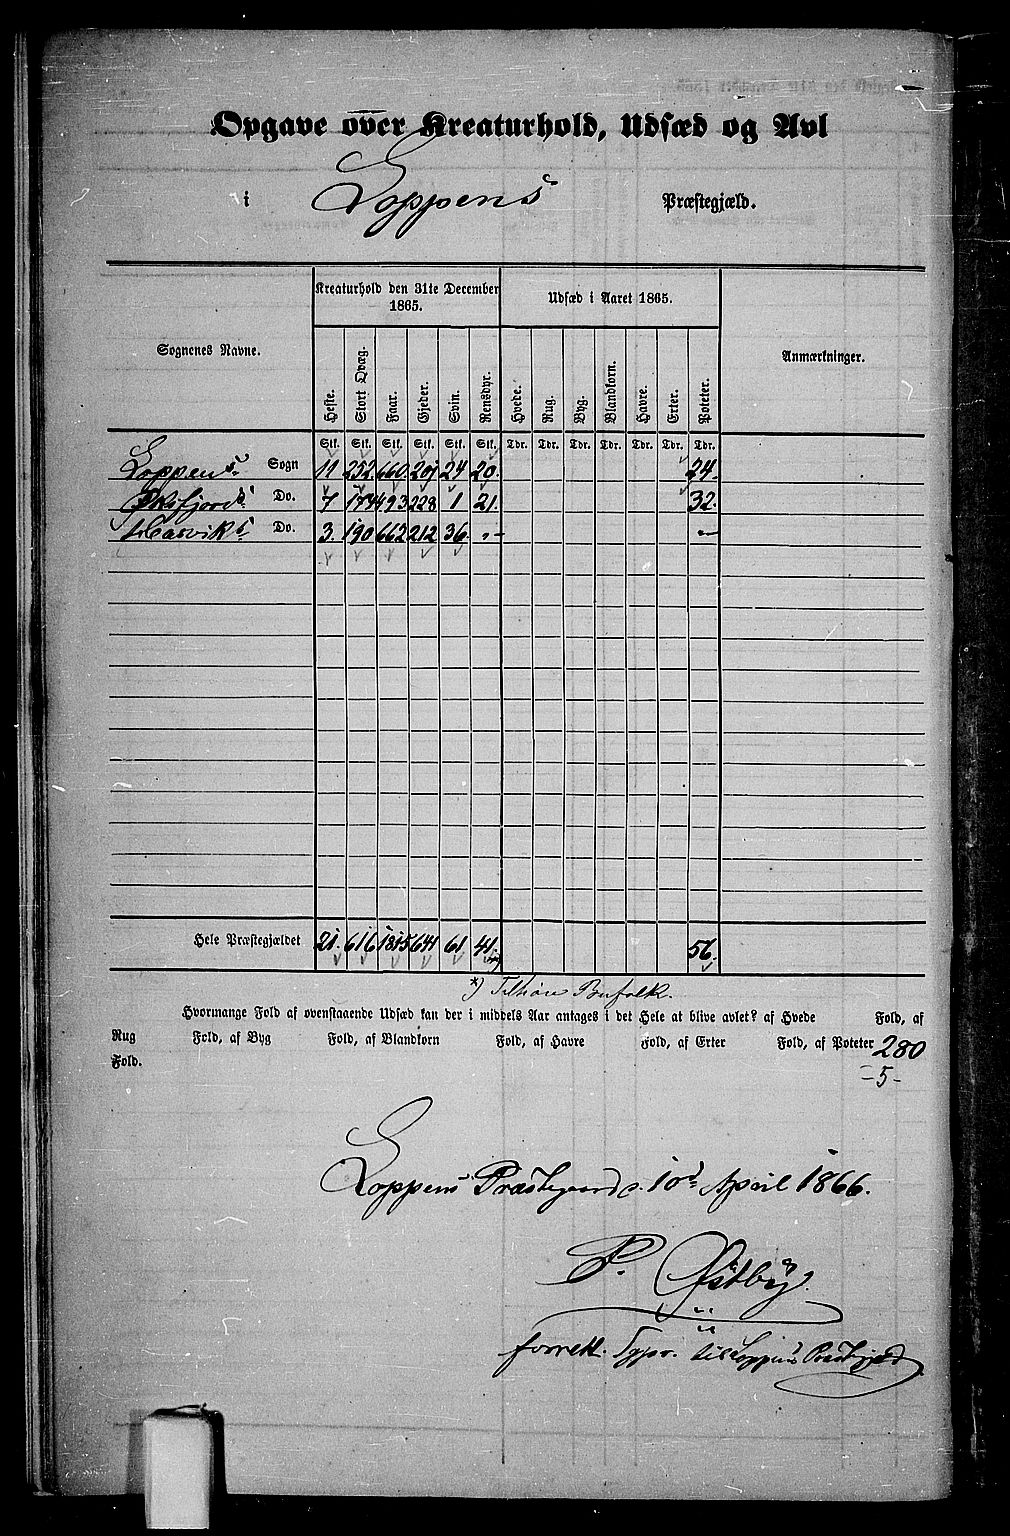 Opgave over Kreaturhold, Udsæd og Avl
i Loppens Præstegjæld.
Sognenes Navne.
Kreaturhold den 31te December 1865.
Udsæd i Aaret 1865.
Anmærkninger.
Heste. Stort Qvæg. Faar. Gjeder. Svin. Rensdyr. Hvede. Rug. Byg. Blandkorn. Havre. Erter. Poteter.
Stk. Stk. Stk. Stk. Stk. Stk. Tdr. Tdr. Tdr. Tdr. Tdr. Tdr. Tdr.
Loppens Sogn 11 252 660 201 24 20. 24.
Øksfjords Do. 7 174 493 228 1 21. 32.
Hasviks Do. 3. 190 662 212 36 "- "-
Hele Præstegjældet 21. 616 1815 641 61 41. 56.
*) Tilhøre Bufolk.
Hvormange Fold af ovenstaaende Udsæd kan der i middels Aar antages i det Hele at blive avlet? af Hvede Fold, af
Rug Fold, af Byg Fold, af Blandkorn Fold, af Havre Fold, af Erter Fold, af Poteter 280
Fold. -5-
Loppens Præstegaard d. 10d April 1866.
P. Østby.
til Loppens Præstegjæld